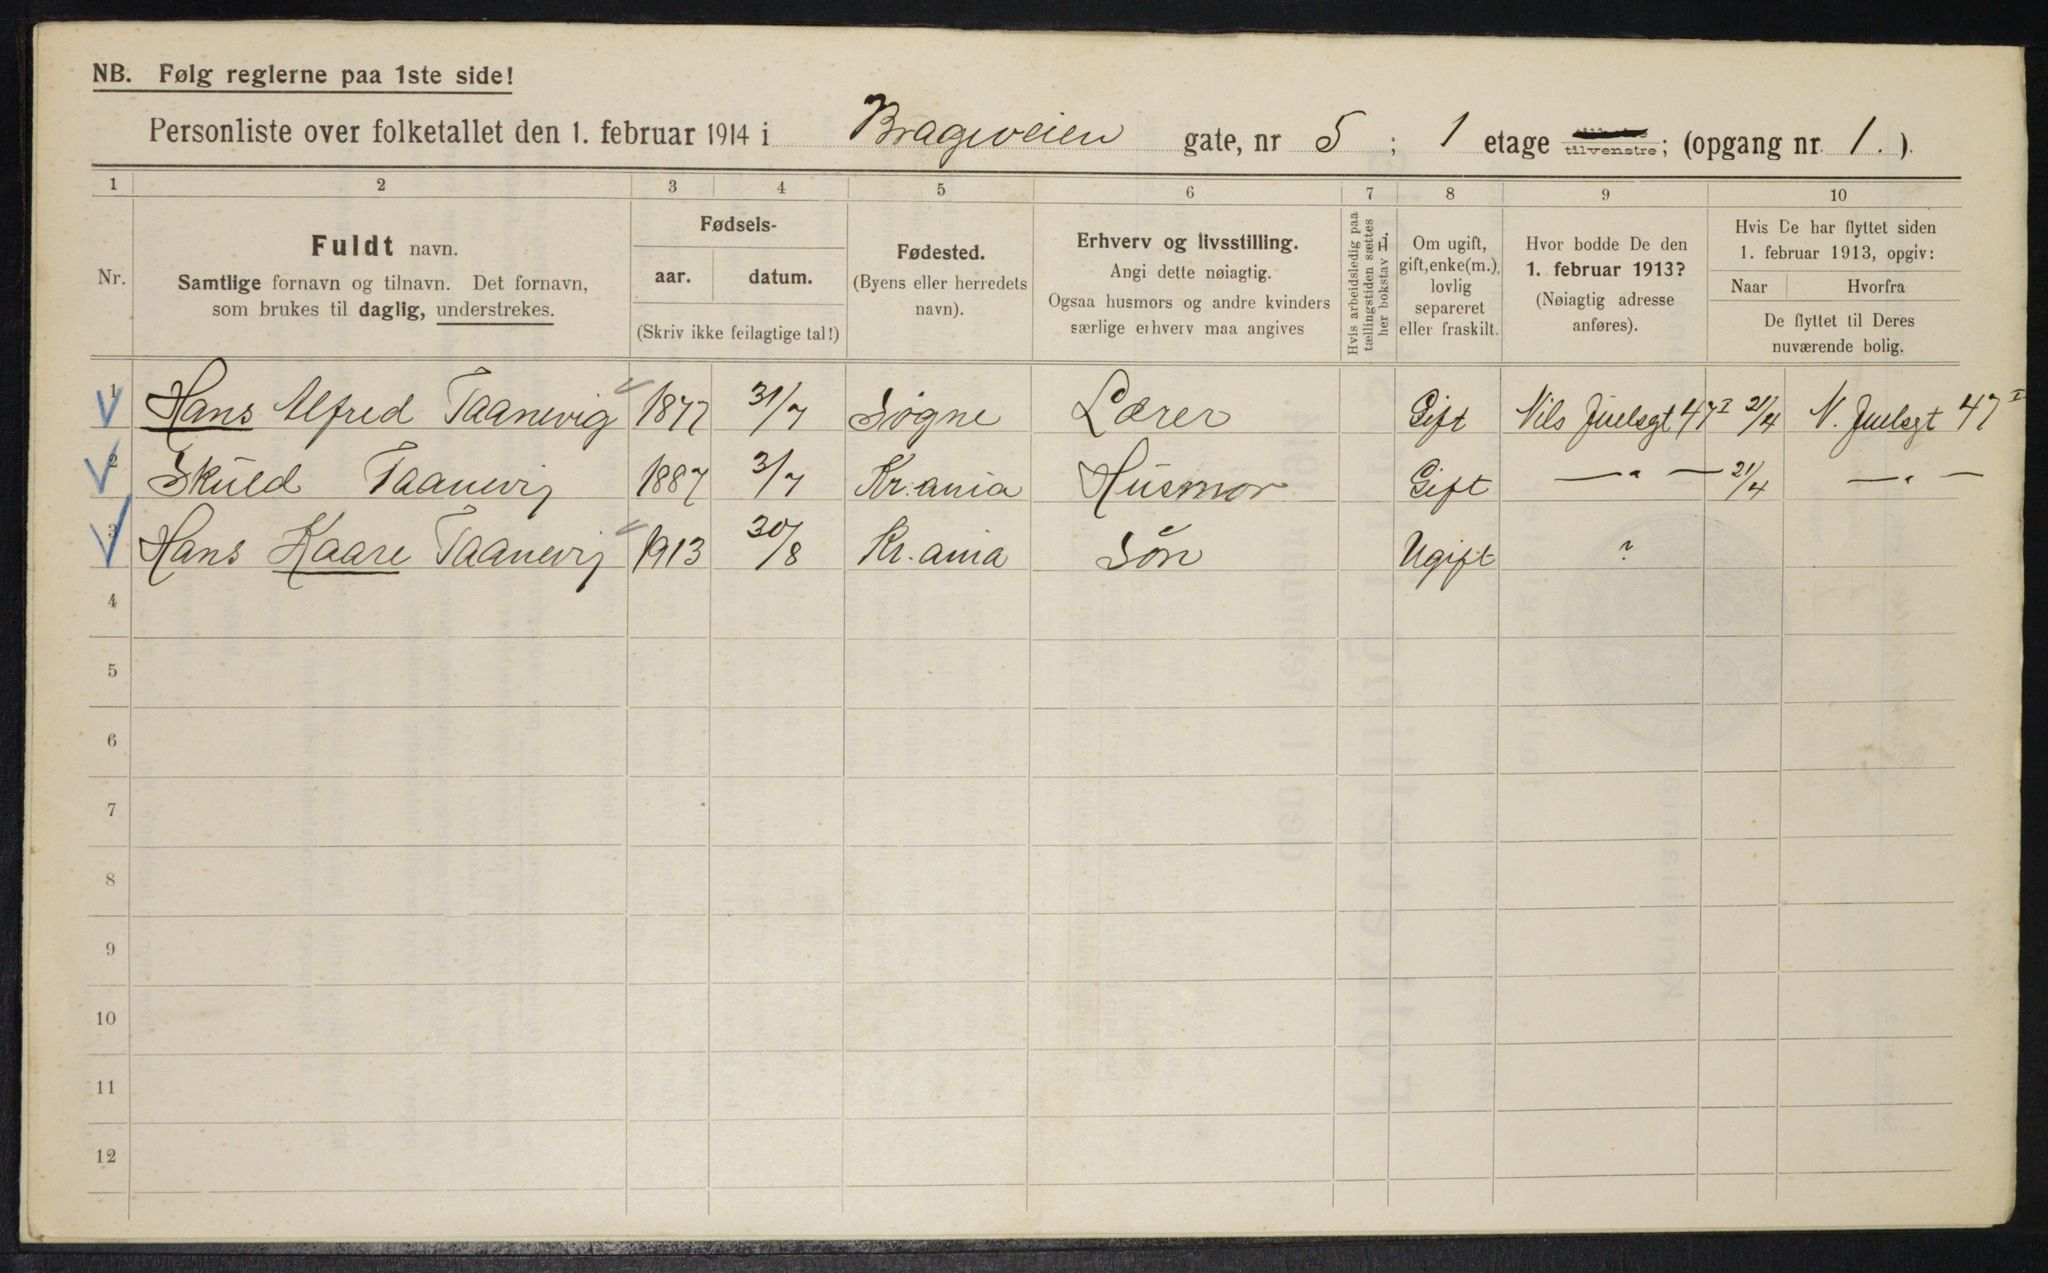 NB. Følg reglerne paa 1ste side!
Personliste over folketallet den 1. februar 1914 i Brageveien gate, nr 5 ; 1 etage tilvenstre; (opgang nr. 1. ).
1 2 3 4 5 6 7 8 9 10
Nr.
Fuldt navn.
Samtlige fornavn og tilnavn. Det fornavn,
som brukes til daglig, understrekes.
Fødsels-
aar. datum.
(Skriv ikke feilagtige tal!)
Fødested.
(Byens eller herredets
navn).
Erhverv og livsstilling.
Angi dette nøiagtig.
Ogsaa husmors og andre kvinders
særlige erhverv maa angives
Hvis arbeidsledig paa
tællingstiden sættes
her bokstav L.
Om ugift,
gift, enke(m.),
lovlig
separeret
eller fraskilt.
Hvor bodde De den
1. februar 1913?
(Nøiagtig adresse
anføres).
Hvis De har flyttet siden
1. februar 1913, opgiv:
Naar Hvorfra
De flyttet til Deres
nuværende bolig.
1 Hans Alfred Taanevig 1877 31/7 Søgne Lærer Gift Nils Juelsgt 47 I 21/4 N. Juelsgt 47 I
2 Skuld Taanevig 1887 3/7 Kr.ania Husmor Gift — " — 21/4 — " —
3 Hans Kaare Taanevig 1913 30/8 Kr.ania Søn Ugift ?
4
5
6
7
8
9
10
11
12